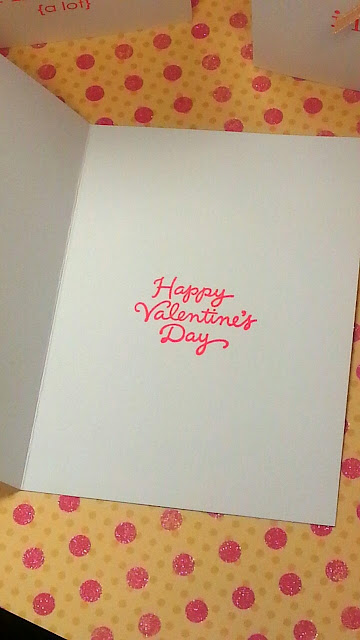 {a lot}
Happy
Valentine's
Day